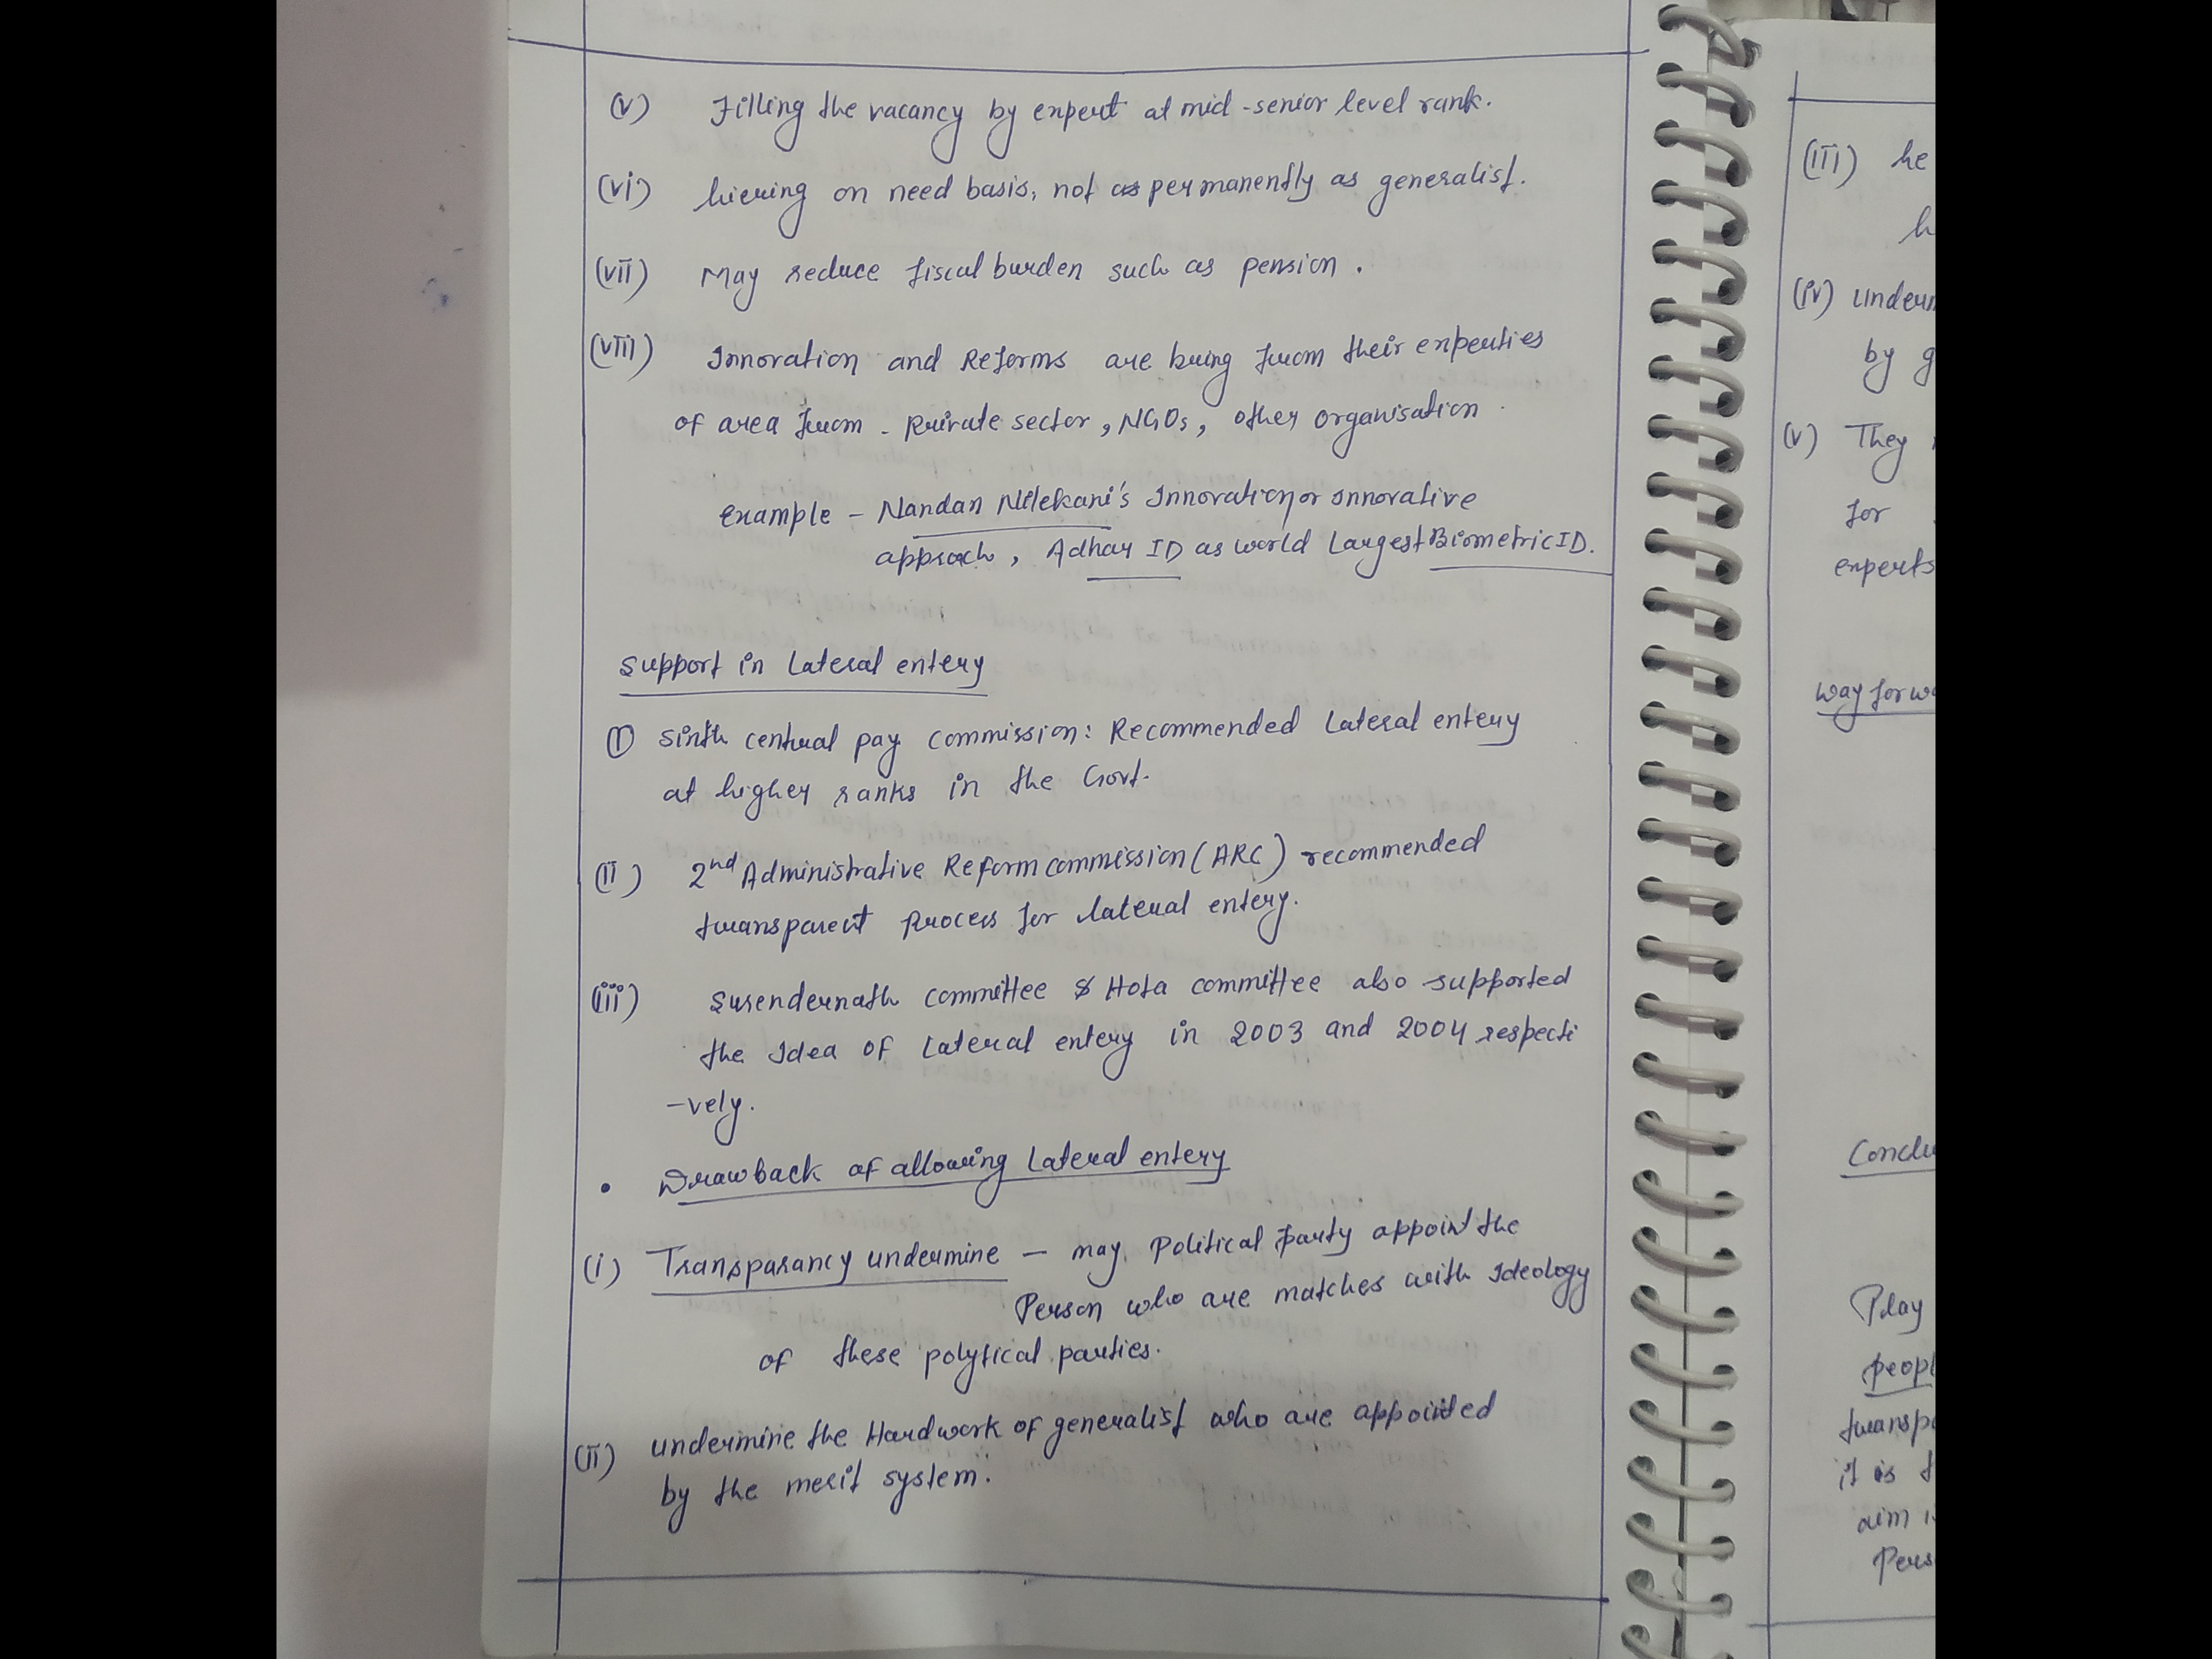 (v) Filling the vacancy by expert at mid-senior level rank.
(vi) hiering on need basis, not as permanently as generalist.
(vii) May reduce fiscal burden such as pension.
(viii) Innovation and Reforms are bring from their experties
of area from - Private sector, NGOs, other organisation
Example - Nandan Nilekani's Innovation or innovative
approach, Adhar ID as world Largest Biometric ID.
Support in Lateral entery
(I) Sixth central pay commission: Recommended Lateral entery
at higher ranks in the Govt.
(II) 2nd Administrative Reform commission (ARC) recommended
transparent process for lateral entery.
(iii) Surendernath committee & Hota committee also supported
the Idea of Lateral entery in 2003 and 2004 respecti
-vely.
• Drawback of allowing Lateral entery
(i) Transparancy undermine - may Political party appoint the
Person who are matches with Ideology
of these polytical parties.
(ii) undermine the Hardwork of generalist who are appointed
by the merit system.
(III) he
(iv) Underm
by g
(v) They
for
experts
way forwa
Conclu
Play
peopl
transpa
it is t
aim i
Pers